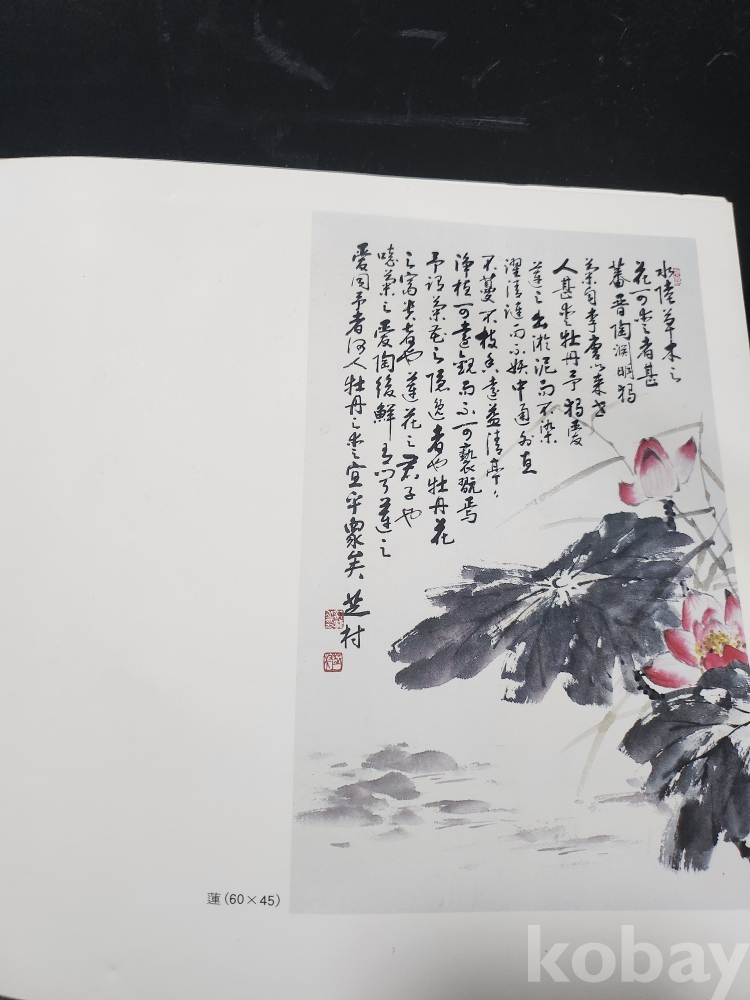 水陸草木之
花可愛者甚
蕃晋陶渊明獨
菊自李唐以来世
人甚愛牡丹予獨愛
蓮之出淤泥而不染
濯清漣而不妖中通外直
不蔓不枝香遠益清亭々
淨植可遠観而不可褻翫焉
予謂菊花之隠逸者也牡丹花
之富貴者也蓮花之君子也
噫菊之愛陶後鮮有聞蓮之
愛同予者何人牡丹之愛宜乎衆矣
芝村
蓮(60×45)
kobay